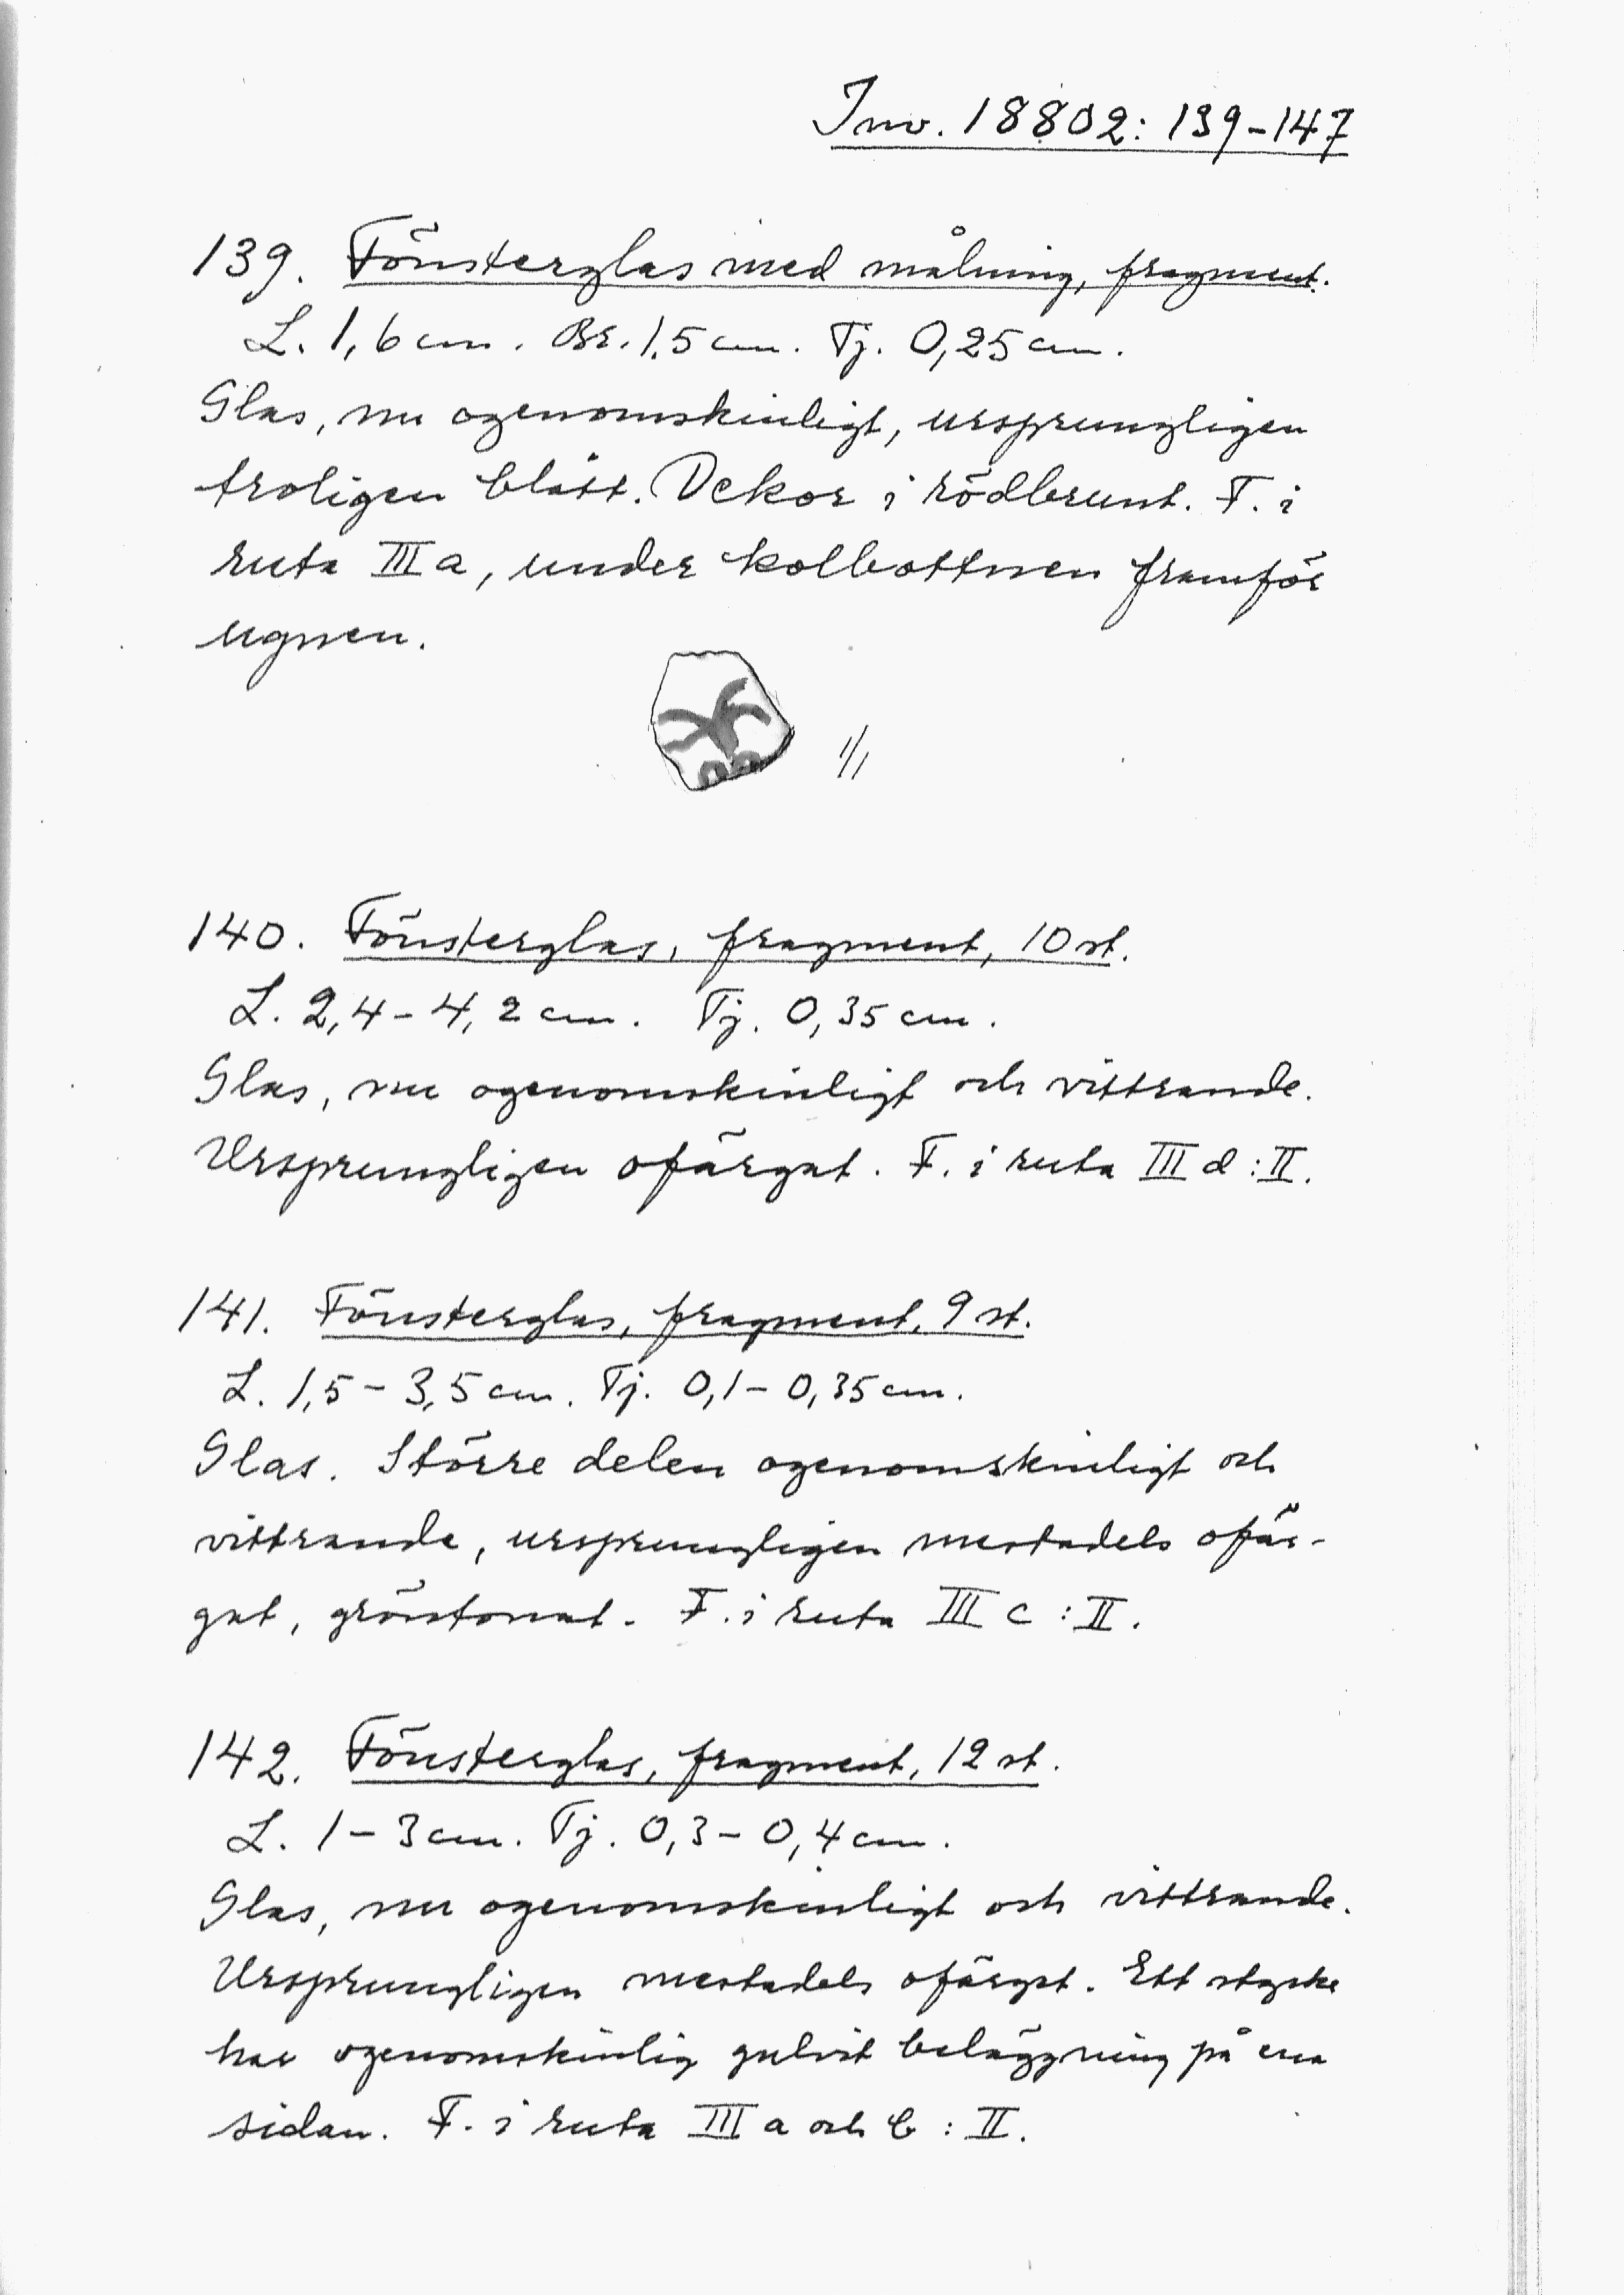 Inv. 18802: 139-147
139. Fönsterglas med målning, fragment.
L. 1,6 cm. Br. 1,5 cm. Tj. 0,25 cm.
Glas, nu ogenomskinligt, ursprungligen
troligen blått. Dekor i rödbrunt. F. i
ruta III a, under kolbottnen framför
ugnen.
1/1
140. Fönsterglas, fragment, 10 st.
L. 2,4 - 4,2 cm. Tj. 0,35 cm.
Glas, nu ogenomskinligt och vittrande.
Ursprungligen ofärgat. F. i ruta III d : II.
141. Fönsterglas, fragment, 9 st.
L. 1,5 - 3,5 cm. Tj. 0,1 - 0,35 cm.
Glas. Större delen ogenomskinligt och
vittrande, ursprungligen mestadels ofär-
gat, gröntonat. F. i ruta III c : II.
142. Fönsterglas, fragment, 12 st.
L. 1 - 3 cm. Tj. 0,3 - 0,4 cm.
Glas, nu ogenomskinligt och vittrande.
Ursprungligen mestadels ofärgat. Ett stycke
har ogenomskinlig gulvit beläggning på ena
sidan. F. i ruta III a och b : II.